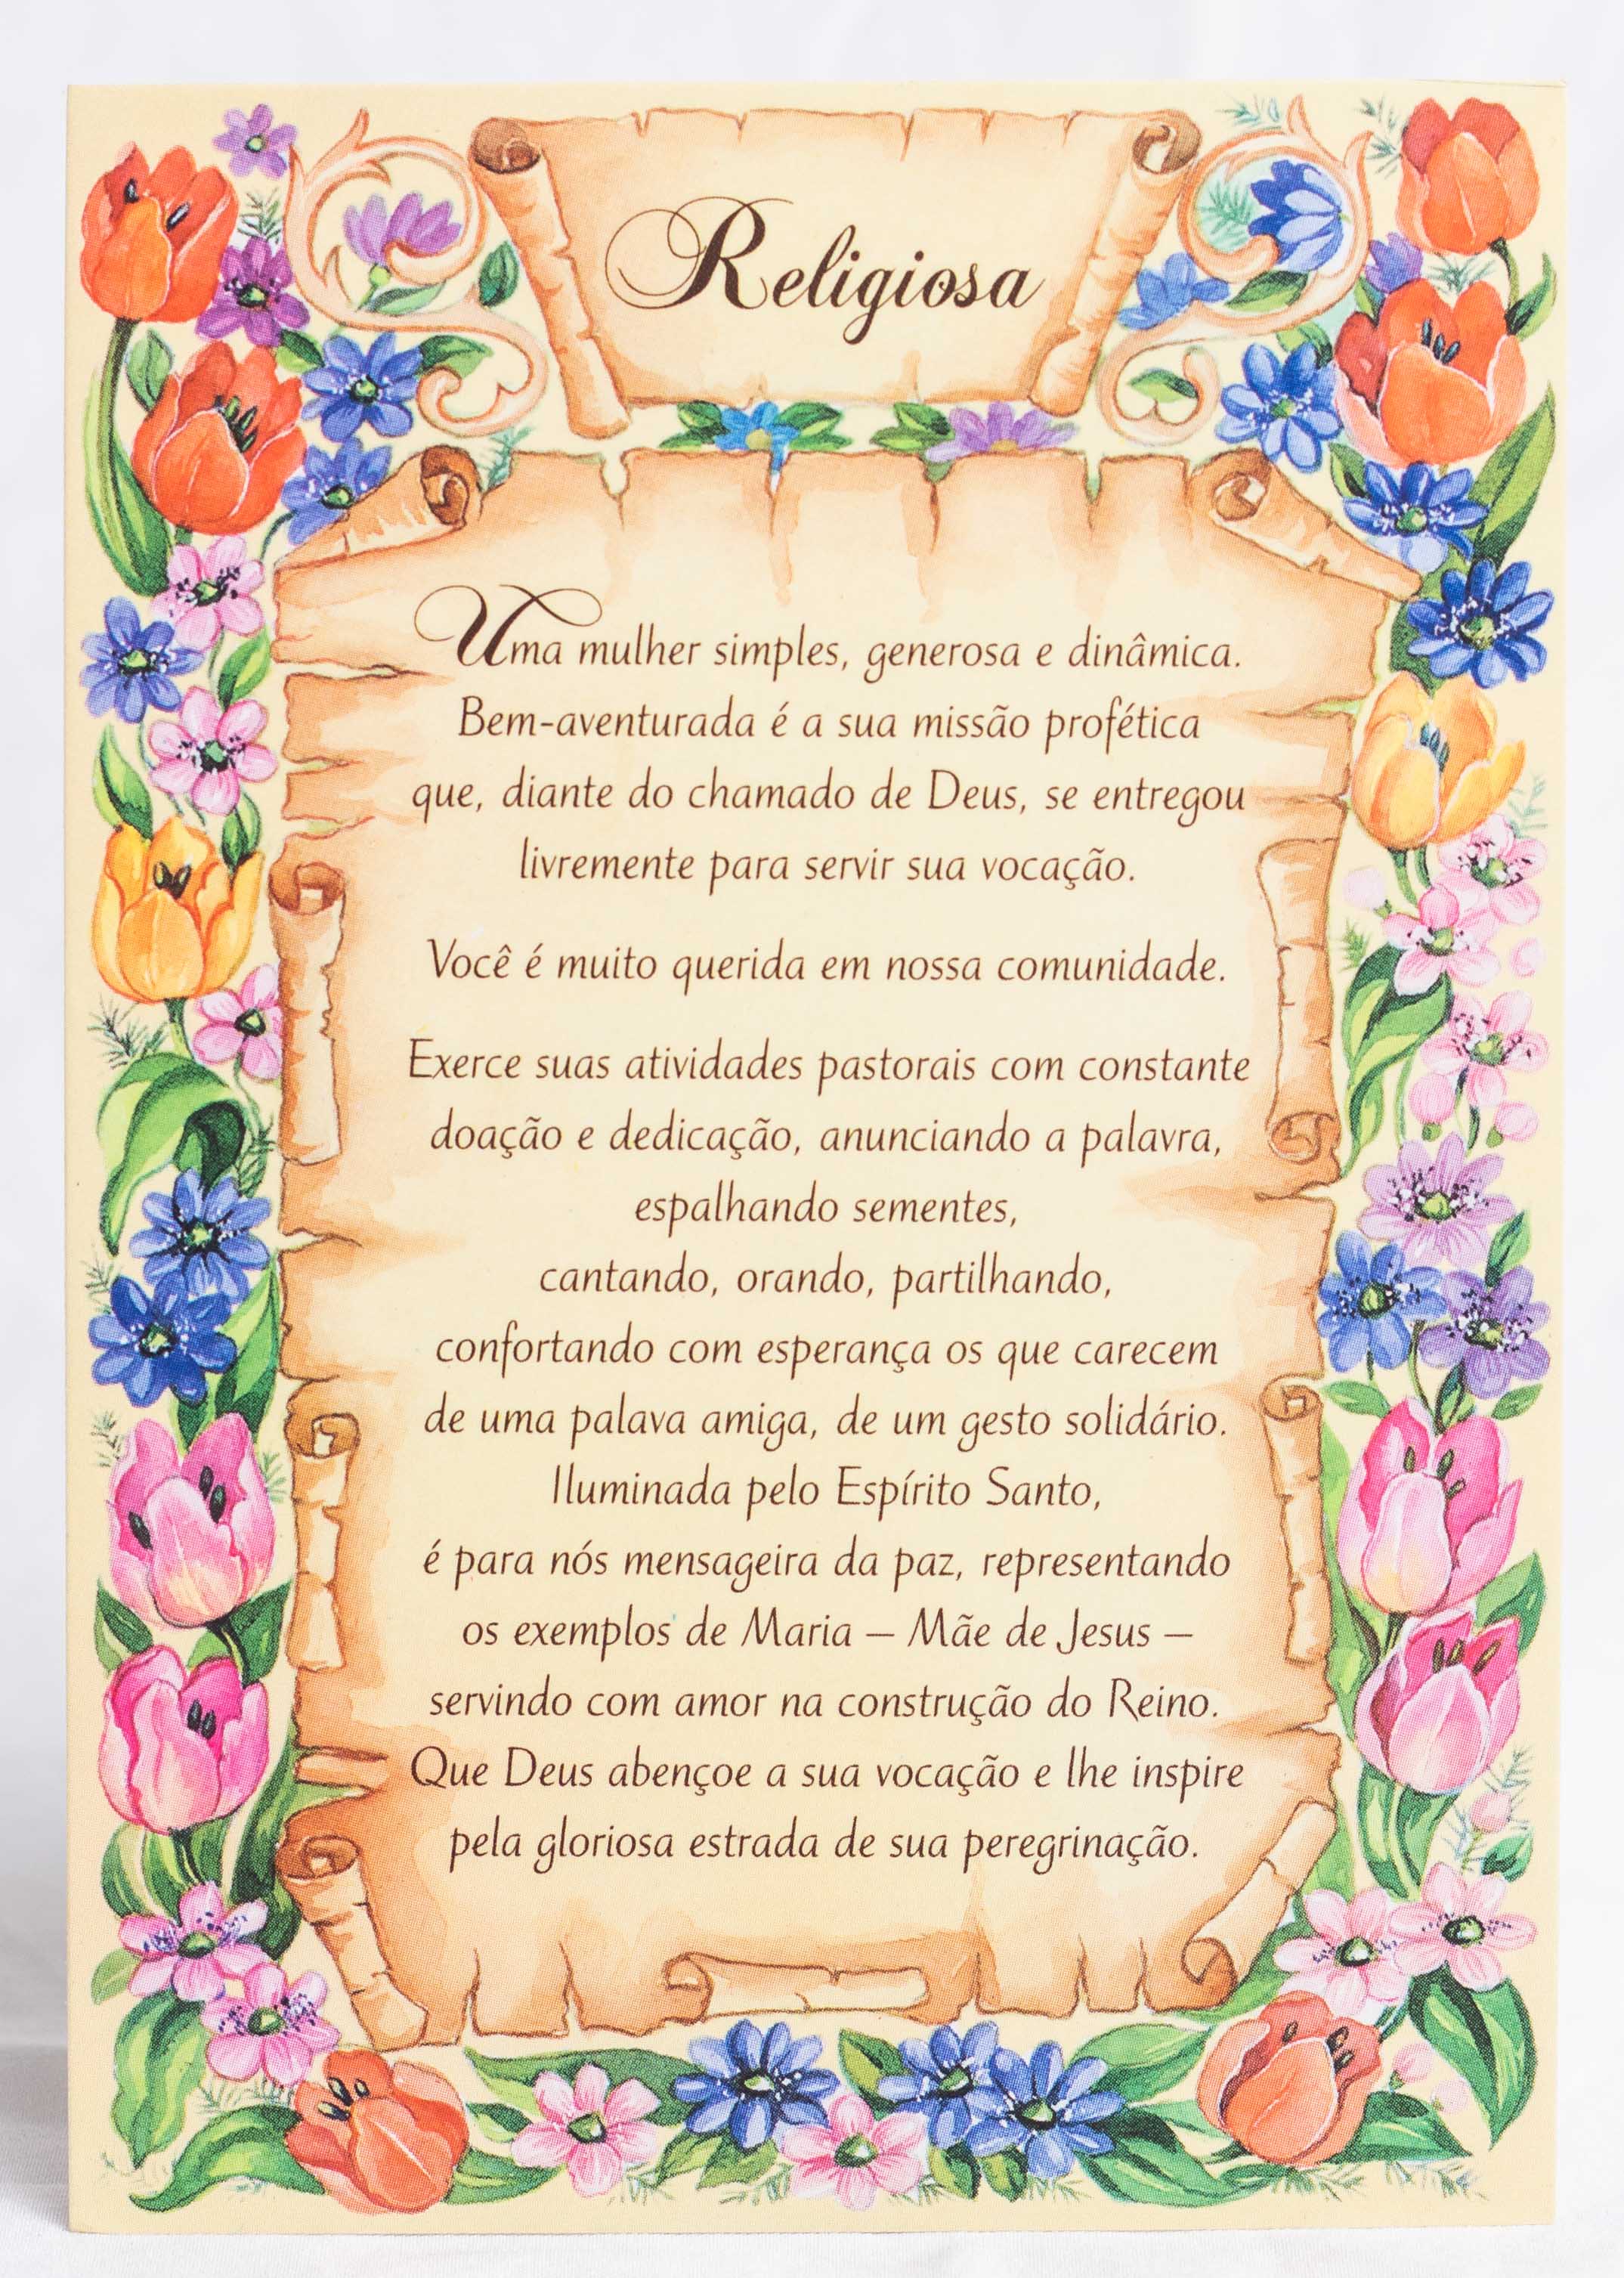 Religiosa
Uma mulher simples, generosa e dinâmica.
Bem-aventurada é a sua missão profética
que, diante do chamado de Deus, se entregou
livremente para servir sua vocação.
Você é muito querida em nossa comunidade.
Exerce suas atividades pastorais com constante
doação e dedicação, anunciando a palavra,
espalhando sementes,
cantando, orando, partilhando,
confortando com esperança os que carecem
de uma palava amiga, de um gesto solidário.
Iluminada pelo Espírito Santo,
é para nós mensageira da paz, representando
os exemplos de Maria – Mãe de Jesus –
servindo com amor na construção do Reino.
Que Deus abençoe a sua vocação e lhe inspire
pela gloriosa estrada de sua peregrinação.